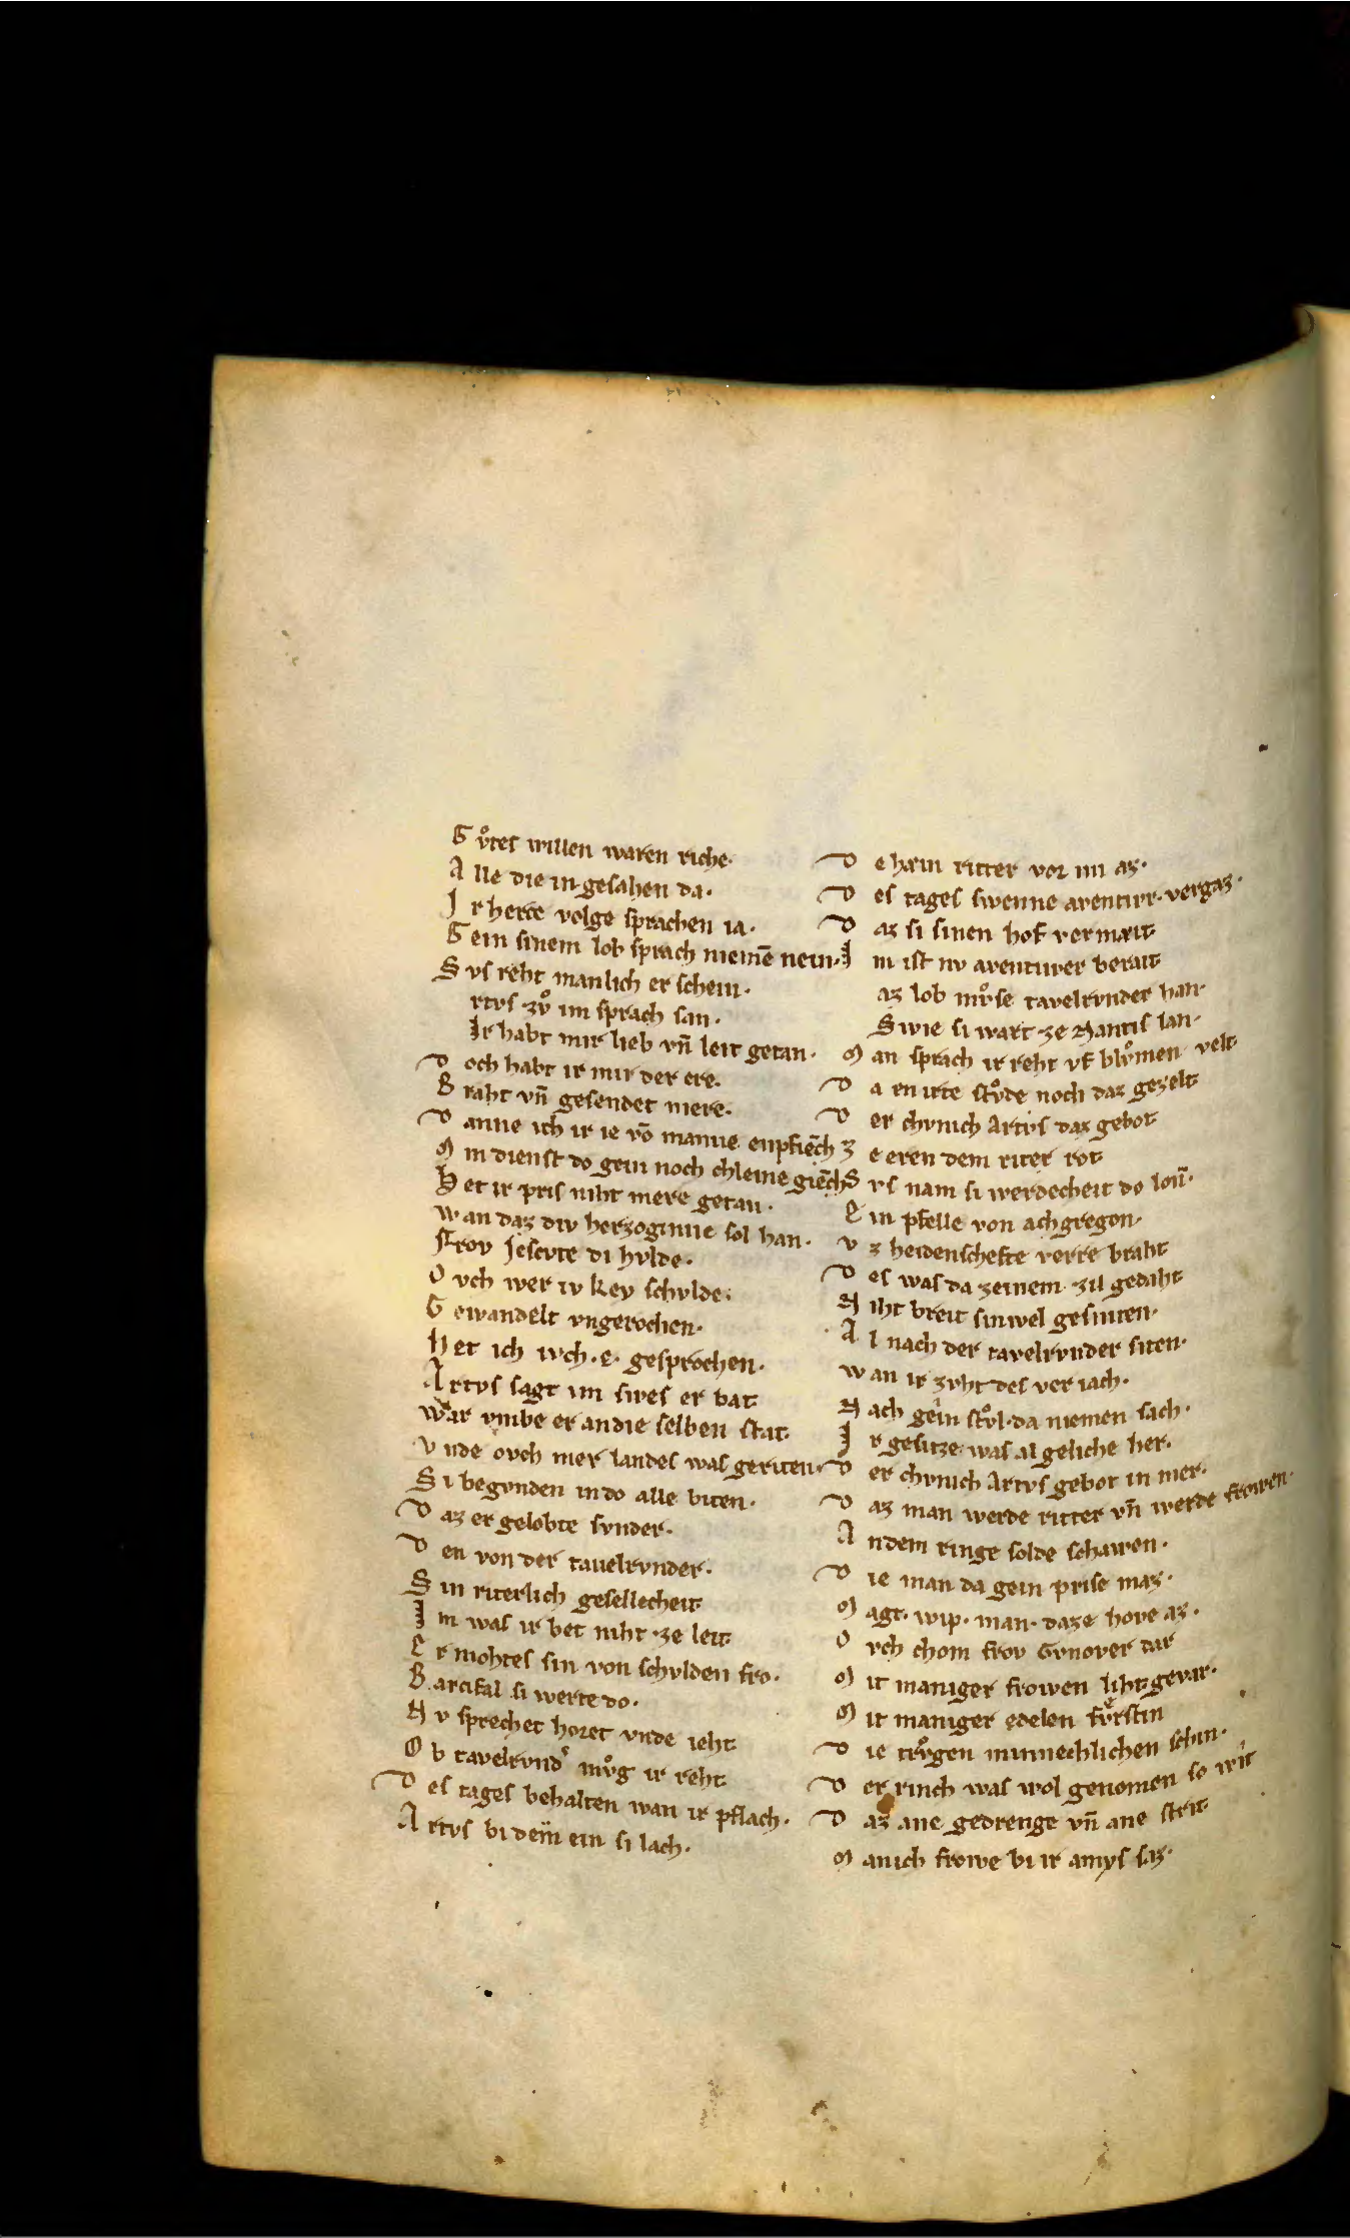 G vͦtes willen waren riche·
A lle die in gesahen da·
I r herce volge sprachen ia·
G ein sinem lob sprach niemē nein·
S vs reht manlich er schein·
rtvs zvͦ im sprach san·
Ir habt mir lieb vn̄ leit getan·
D och habt ir mir der ere·
B raht vn̄ gesendet mere·
D anne ich ir ie vō manne enpfiēch
M in dienst do gein noch chleine giēch
H et ir pris niht mere getan·
W an daz div herzoginne sol han·
Frov Jescvte di hvlde·
O vch wer iv Key schvlde·
G ewandelt vngerochen·
H et ich ivch·e· gesprochen·
A rtvs sagt im swes er bat·
War vmbe er an die selben stat·
V nde ovch mer landes was geriten·
S i begvnden in do alle biten·
D az er gelobte svnder·
D en von der tauelrvnder·
S in riterlich gesellecheit·
I m was ir bet niht ze leit·
E r mohtes sin von schvlden fro·
B arcifal si werte do·
N v sprechet horet vnde ieht·
O b tavelrvnd' mvͦg ir reht·
D es tages behalten wan ir pflach·
A rtvs bi dem ein si lach·
D ehæin ritter vor im az·
D es tages swenne aventivr·vergaz·
D az si sinen hof vermæit·
I m ist nv aventivver berait·
az lob mvͦse tavelrvnder han·
Swie si wart ze Nantis lan·
M an sprach ir reht vf blvͦmen velt·
D a en irte stvͦde noch daz gezelt·
D er chvnich Artvs daz gebot·
Z e eren dem riter rot·
S vs nam si werdecheit do lon̄·
E in pfelle von achgregon·
V z heidenschefte verre braht·
D es was da zeinem zil gedaht·
N iht breit sinwel gesniten·
A l nach der tavelrvnder siten·
W an ir zvht des veriach·
N ach gein stvͦl·da niemen sach·
I r gesitze was al geliche her·
D er chvnich Artvs gebot in mer·
D az man werde ritter vn̄ werde frowen·
A n dem ringe solde schawen·
D ie man da gein prise maz·
M agt·wip·man·daze hove az·
O vch chom frov Gynover dar
M it maniger frowen liht gevar·
M it maniger edelen fvͤrstin
D ie trvͦgen minnechlichen schin·
D er rinch was wol genomen so wit
D az ane gedrenge vn̄ ane strit·
M anich frowe bi ir amys saz·